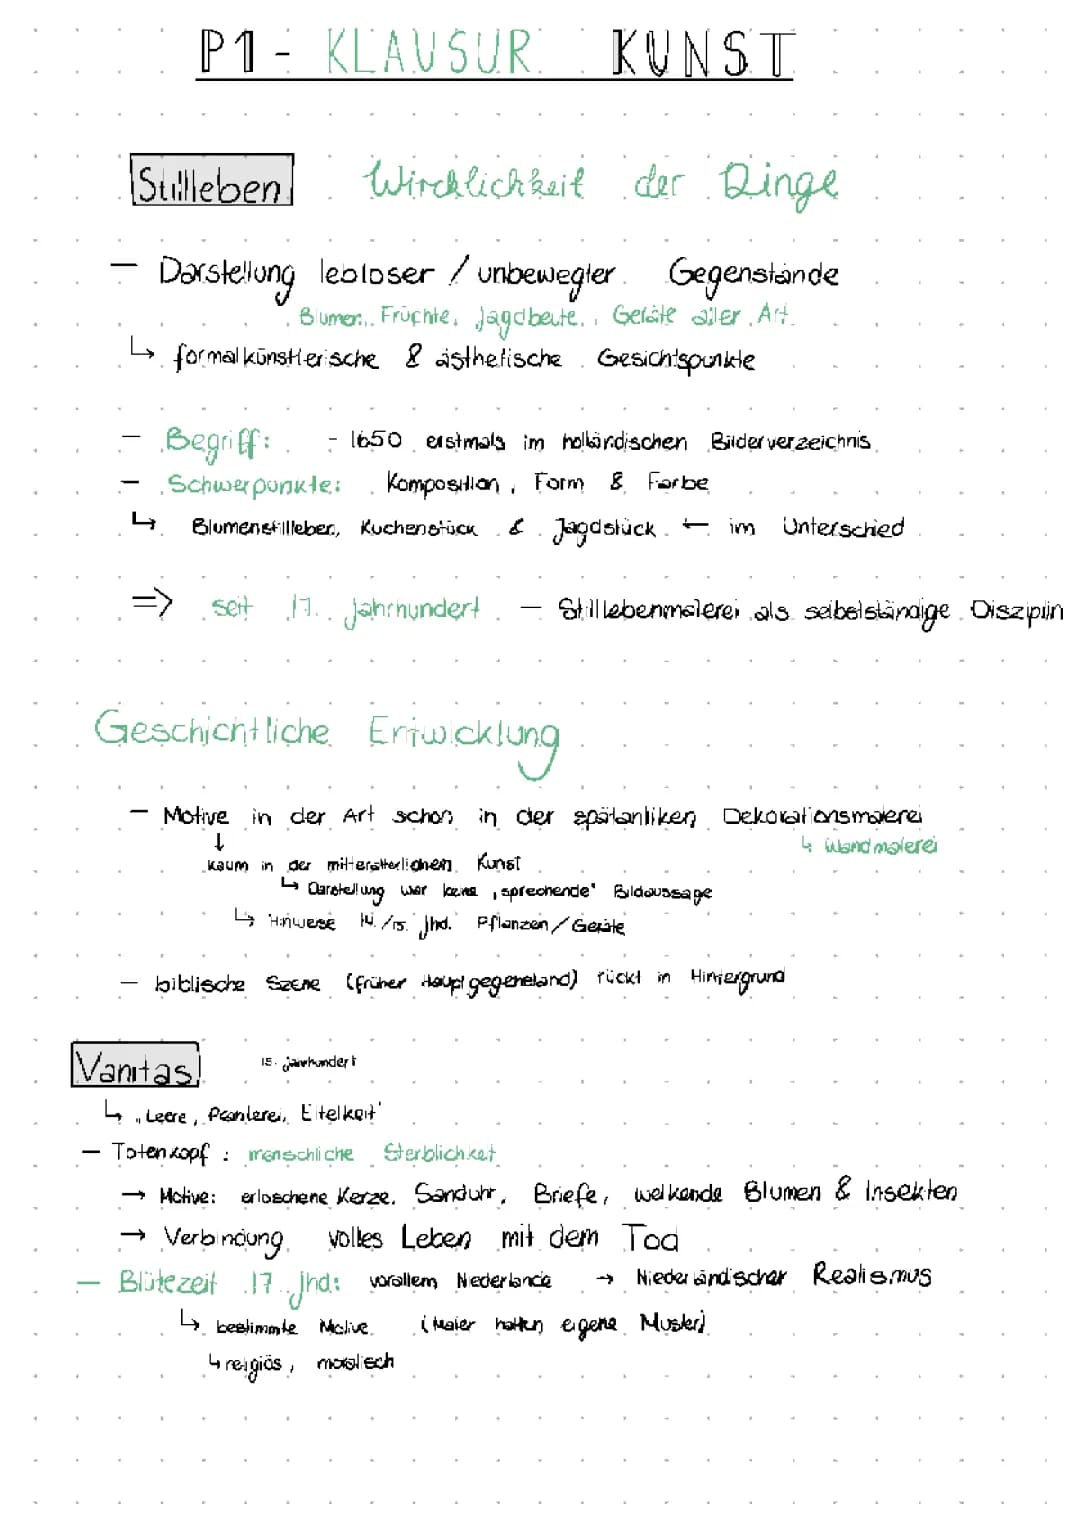 P1 - KLAUSUR KUNST
Stillleben Wircklichkeit der Dinge
— Darstellung lebloser / unbewegter Gegenstände
Blumen, Früchte, Jagdbeute, Geräte aller Art
↳ formalkünstlerische & ästhetische Gesichtspunkte
— Begriff: - 1650 erstmals im holländischen Bilderverzeichnis
— Schwerpunkte: Komposition, Form & Farbe
↳ Blumenstillleben, Küchenstück & Jagdstück ← im Unterschied
=> seit 17. Jahrhundert — Stilllebenmalerei als selbstständige Disziplin
Geschichtliche Entwicklung
— Motive in der Art schon in der spätantiken Dekorationsmalerei
↓ ↳ Wandmalerei
kaum in der mittelalterlichen Kunst
↳ Darstellung war keine "sprechende" Bildaussage
↳ Hinweise 14./15. Jhd. Pflanzen/Geräte
— biblische Szene (früher Hauptgegenstand) rückt in Hintergrund
Vanitas 15. Jahrhundert
↳ "Leere, Prahlerei, Eitelkeit"
— Totenkopf: menschliche Sterblichkeit
→ Motive: erloschene Kerze, Sanduhr, Briefe, welkende Blumen & Insekten
→ Verbindung volles Leben mit dem Tod
— Blütezeit 17. Jhd: vorallem Niederlande → Niederländischer Realismus
↳ bestimmte Motive (Maler hatten eigene Muster)
↳ religiös, moralisch